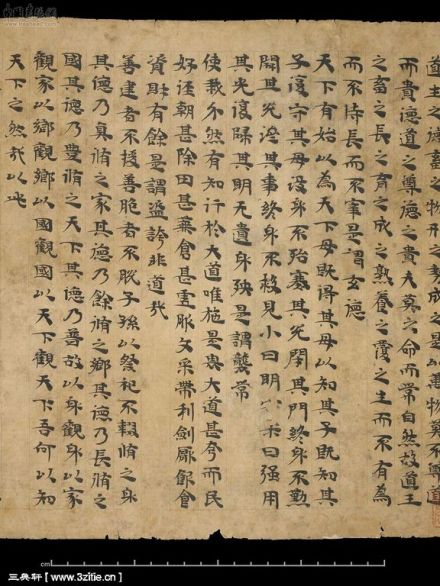 道生之德畜之物形之勢成之是以萬物莫不尊道
而貴德道之尊德之貴夫莫之命而常自然故道生
之畜之長之育之成之熟養之覆之生而不有為
而不恃長而不宰是謂玄德
天下有始以為天下母既得其母以知其子既知其
子復守其母没身不殆塞其兌閉其門終身不勤
開其兌濟其事終身不救見小曰明柔曰强用
其光復歸其明无遺身殃是謂襲常
使我介然有知行於大道唯施是畏大道甚夷而民
好徑朝甚除田甚蕪倉甚虛服文采帶利劍厭飲食
資財有餘是謂盜誇非道哉
善建者不拔善抱者不脫子孫以祭祀不輟脩之身
其德乃真脩之家其德乃餘脩之鄉其德乃長脩之
國其德乃豐脩之天下其德乃普故以身觀身以家
觀家以鄉觀鄉以國觀國以天下觀天下吾何以知
天下之然哉以此
cm
三典轩 [ www.3zitie.cn ]